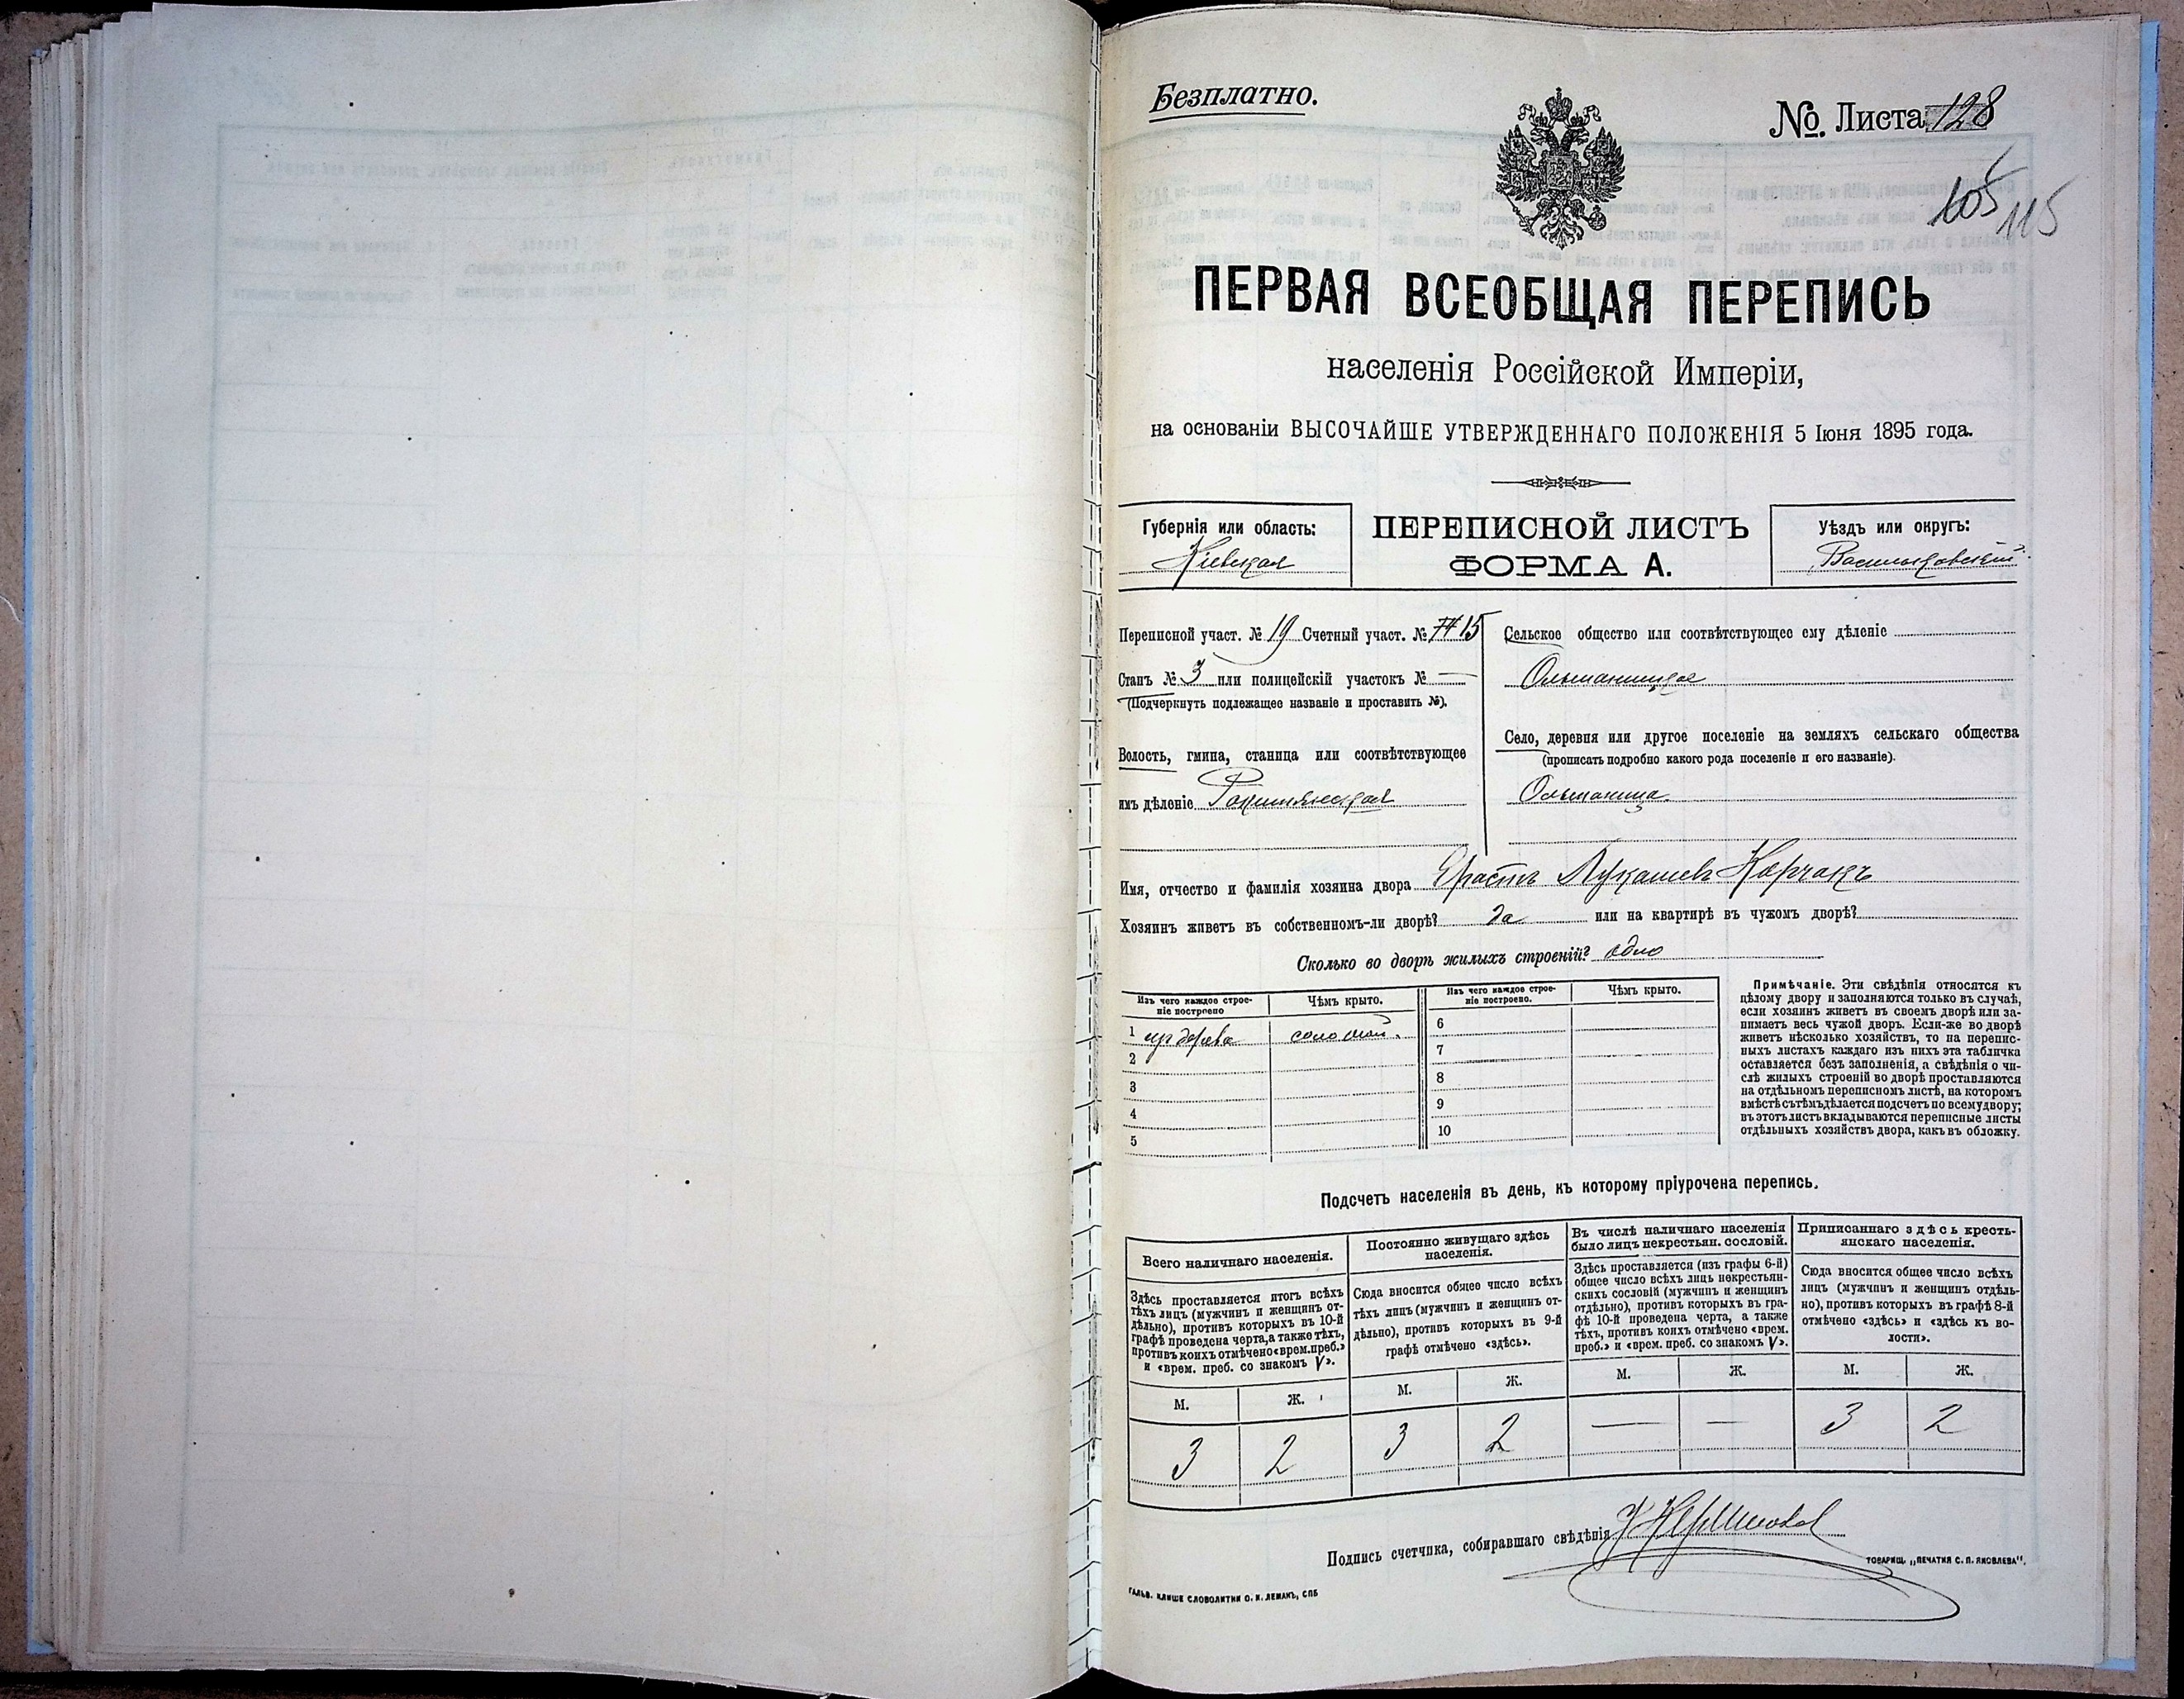 Безплатно.
№. Листа 128
105 115
ПЕРВАЯ ВСЕОБЩАЯ ПЕРЕПИСЬ
населенія Россійской Имперіи,
на основаніи ВЫСОЧАЙШЕ УТВЕРЖДЕННАГО ПОЛОЖЕНІЯ 5 Іюня 1895 года.
Губернія или область:
Кіевская
ПЕРЕПИСНОЙ ЛИСТЪ
ФОРМА А.
Уѣздъ или округъ:
Васильковскій
Переписной участ. № 19 Счетный участ. № 15
Станъ № 3 или полицейскій участокъ № —
(Подчеркнуть подлежащее названіе и проставить №).
Волость, гмина, станица или соотвѣтствующее
имъ дѣленіе Рокитянская
Сельское общество или соотвѣтствующее ему дѣленіе
Ольшаницкое
Село, деревня или другое поселеніе на земляхъ сельскаго общества
(прописать подробно какого рода поселеніе и его названіе).
Ольшаница
Имя, отчество и фамилія хозяина двора Ерастъ Лукашевъ Корчакъ
Хозяинъ живетъ въ собственномъ-ли дворѣ? да или на квартирѣ въ чужомъ дворѣ?
Сколько во дворѣ жилыхъ строеній? одно
Изъ чего каждое строе-
ніе построено
Чѣмъ крыто.
Изъ чего каждое строе-
ніе построено.
Чѣмъ крыто.
1 изъ дерева соломой.
2
3
4
5
6
7
8
9
10
Примѣчаніе. Эти свѣдѣнія относятся къ
цѣлому двору и заполняются только въ случаѣ,
если хозяинъ живетъ въ своемъ дворѣ или за-
нимаетъ весь чужой дворъ. Если-же во дворѣ
живетъ нѣсколько хозяйствъ, то на перепис-
ныхъ листахъ каждаго изъ нихъ эта табличка
оставляется безъ заполненія, а свѣдѣнія о чи-
слѣ жилыхъ строеній во дворѣ проставляются
на отдѣльномъ переписномъ листѣ, на которомъ
вмѣстѣ съ тѣмъ дѣлается подсчетъ по всему двору;
въ этотъ листъ вкладываются переписные листы
отдѣльныхъ хозяйствъ двора, какъ въ обложку.
Подсчетъ населенія въ день, къ которому пріурочена перепись.
Всего наличнаго населенія.
Здѣсь проставляется итогъ всѣхъ
тѣхъ лицъ (мужчинъ и женщинъ от-
дѣльно), противъ которыхъ въ 10-й
графѣ проведена черта, а также тѣхъ,
противъ коихъ отмѣчено «врем. преб.»
и «врем. преб. со знакомъ V».
М. Ж.
3 2
Постоянно живущаго здѣсь
населенія.
Сюда вносится общее число всѣхъ
тѣхъ лицъ (мужчинъ и женщинъ от-
дѣльно), противъ которыхъ въ 9-й
графѣ отмѣчено «здѣсь».
М. Ж.
3 2
Въ числѣ наличнаго населенія
было лицъ некрестьян. сословій.
Здѣсь проставляется (изъ графы 6-й)
общее число всѣхъ лицъ некрестьян-
скихъ сословій (мужчинъ и женщинъ
отдѣльно), противъ которыхъ въ гра-
фѣ 10-й проведена черта, а также
тѣхъ, противъ коихъ отмѣчено «врем.
преб.» и «врем. преб. со знакомъ V».
М. Ж.
— —
Приписаннаго здѣсь кресть-
янскаго населенія.
Сюда вносится общее число всѣхъ
лицъ (мужчинъ и женщинъ отдѣль-
но), противъ которыхъ въ графѣ 8-й
отмѣчено «здѣсь» и «здѣсь къ во-
лости».
М. Ж.
3 2
Подпись счетчика, собиравшаго свѣдѣнія
ТОВАРИЩ. „ПЕЧАТНЯ С. П. ЯКОВЛЕВА".
ГАЛЬВ. КЛИШЕ СЛОВОЛИТНИ О. И. ЛЕМАНЪ, СПБ